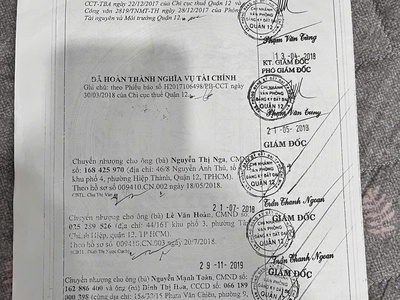 CCT-TBA ngày 22/12/2017 của Chi cục thuế Quận 12 và
Công văn 2819/TNMT-TH ngày 28/12/2017 của Phòng
Tài nguyên và Môi trường Quận 12.
CHI NHÁNH
VĂN PHÒNG
ĐĂNG KÝ ĐẤT ĐAI
QUẬN 12
Phạm Văn Tùng
13-04-2018
KT. GIÁM ĐỐC
PHÓ GIÁM ĐỐC
ĐÃ HOÀN THÀNH NGHĨA VỤ TÀI CHÍNH
Ghi chú: theo Phiếu báo số H2017106498/PB-CCT ngày
30/03/2018 của Chi cục thuế Quận 12.
CHI NHÁNH
VĂN PHÒNG
ĐĂNG KÝ ĐẤT ĐAI
QUẬN 12
Phạm Văn Tùng
21-05-2018
GIÁM ĐỐC
Chuyển nhượng cho ông (bà) Nguyễn Thị Nga, CMND
số: 168 425 970 (địa chỉ: 46/8 Nguyễn Ảnh Thủ, tổ
khu phố 4, phường Hiệp Thành, Quận 12, TPHCM).
Theo hồ sơ số 009410.CN.002 ngày 18/05/2018.
CHI NHÁNH
VĂN PHÒNG
ĐĂNG KÝ ĐẤT ĐAI
QUẬN 12
Trần Thanh Ngoan
21-07-2018
GIÁM ĐỐC
Chuyển nhượng cho ông (bà) Lê Văn Hoài, CMND
số: 025 239 526 (địa chỉ: 44/161 khu phố 3, phường
Hiệp, quận 12, TP.HCM).
Theo hồ sơ số 009410.CN.003 ngày 20/7/2018.
Trần Thanh Ngoan
29-11-2019
GIÁM ĐỐC
Chuyển nhượng cho ông (bà) Nguyễn Mạnh Toàn, CMND
số: 162 886 400 và ông (bà) Đinh Thị Hoa, CCCD số: 066 189